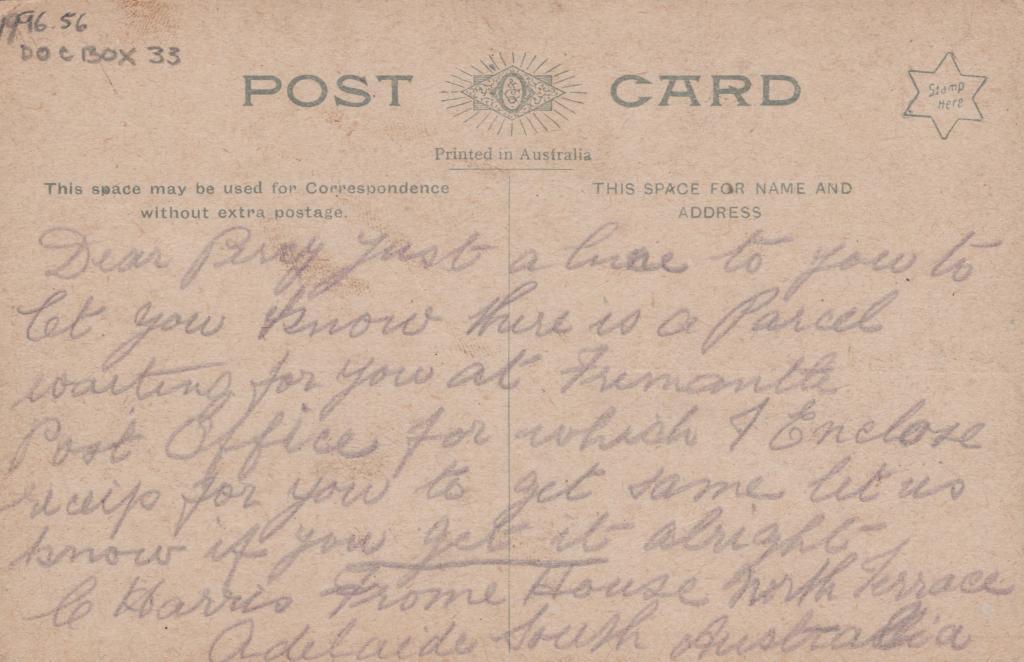 1996.56
DOC BOX 33
POST CARD
Stamp Here
Printed in Australia
This space may be used for Correspondence
without extra postage.
THIS SPACE FOR NAME AND
ADDRESS
Dear Percy Just a line to you to
let you know there is a Parcel
waiting for you at Fremantle
Post Office for which I Enclose
receip for you to get same let us
know if you get it alright
C Harris Frome House North Terrace
Adelaide South Australia